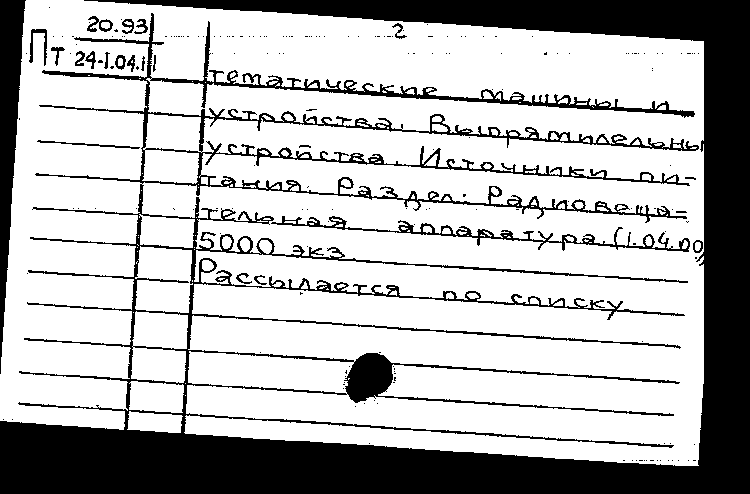 20.93
2
П Т 24-1.04.
тематические машины и
устройства. Выпрямительны
устройства. Источники пи-
тания. Раздел: Радиовеща-
тельная аппаратура. (1.04.00)
5000 экз.
Рассылается по списку